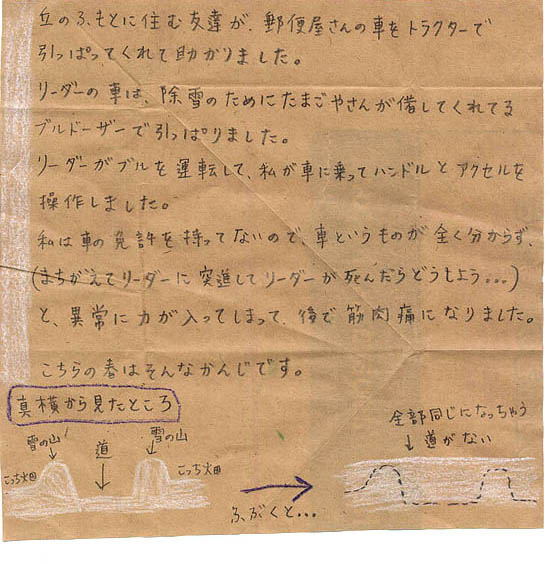 丘のふもとに住む友達が、郵便屋さんの車をトラクターで
引っぱってくれて助かりました。
リーダーの車は、除雪のためにたまごやさんが借してくれてる
ブルドーザーで引っぱりました。
リーダーがブルを運転して、私が車に乗ってハンドルとアクセルを
操作しました。
私は車の免許を持ってないので、車というものが全く分からず、
(まちがえてリーダーに突進してリーダーが死んだらどうしよう...)
と、異常に力が入ってしまって、後で筋肉痛になりました。
こちらの春はそんなかんじです。
真横から見たところ
雪の山
道
雪の山
こっち畑
こっち畑
ふぶくと...
全部同じになっちゃう
道がない